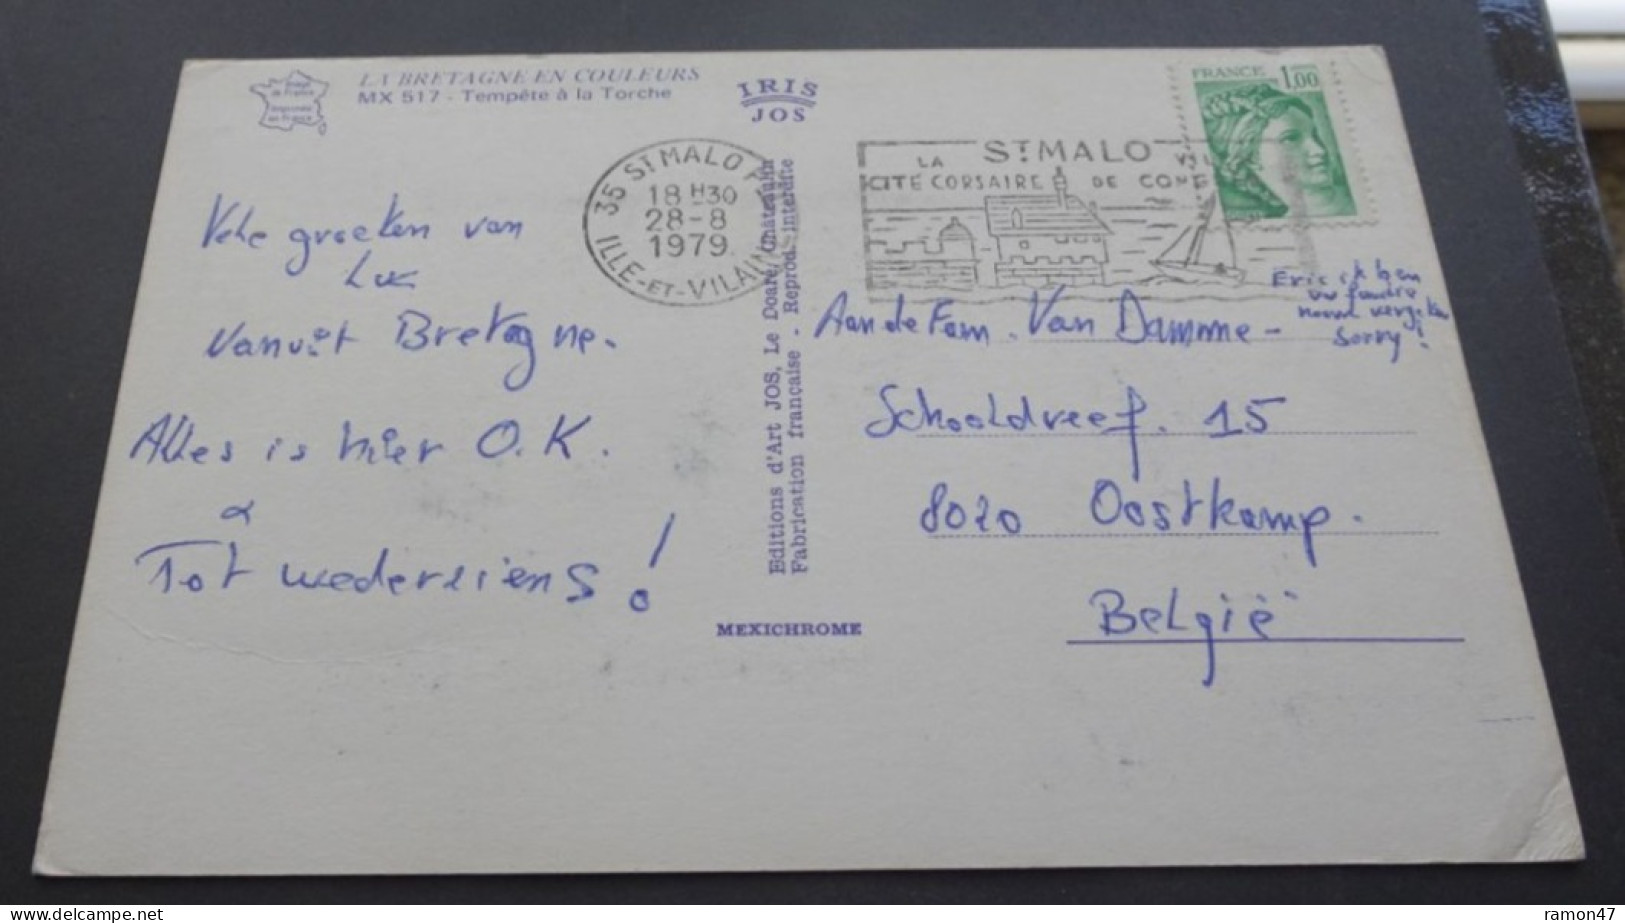 LA BRETAGNE EN COULEURS
MX 517 - Tempête à la Torche
Image de France
Imprimée en France
IRIS
JOS
35 ST MALO
18 H30
28-8
1979
ILLE-ET-VILAINE
ST MALO
LA
CITÉ CORSAIRE DE
FRANCE 1,00
Vele groeten van
Luc
vanuit Bretagne.
Alles is hier O.K.
Tot wederziens!
Editions d'Art JOS, Le Doaré, Châteaulin
Fabrication française . Reprod. interdite
MEXICHROME
Eric ik ben
uw familie
naam vergeten
Sorry!
Aan de Fam. Van Damme-
Schooldreef. 15
8020 Oostkamp.
België
ramon47